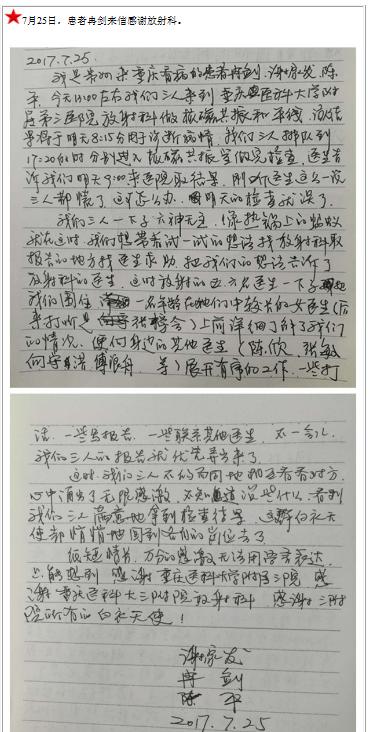 7月25日，患者冉剑来信感谢放射科。
2017.7.25.
我是常州来重庆看病的患者冉剑、谢家发、陈
平、今天15:00左右我们三人来到重庆医科大学附
属第三医院放射科做核磁共振和平线，说结
果得于明天8:15分用于诊断病情，我们三人排队到
17:20的时分别进入核磁共振室做完检查，医生告
诉我们明天9:00来医院取结果，刚听医生这么一说
三人都慌了，这可怎么办、明天的检查就误了。
我们三人一下子六神无主，像热锅上的蚂蚁
就在这时，我们想尝试一试的想法找放射科取
报告的地方找医生求助，把我们的想法告诉了
放射科的医生，这时放射科的五六名医生一下子把
我们围住，一名年龄在她们中较长的女医生（后
来打听是张会）上前详细了解了我们
的情况，便向身边的其他医生（陈欣、张敏
向学洪、傅限舟 等）展开有序的工作，一些打
话、一些写报告、一些联系其他医生，不一会儿
我们三人的报告就优先弄出来了。
这时，我们三人不约而同地相互看看对方，
心中涌出了无限感激，不知道说些什么，看到
我们三人满意地拿到检查结果，这群白衣天
使都悄悄地回到各自的岗位去了
纸短情长，万分的感激无法用语言表达，
只能想到，感谢重庆医科大学附属三院，感
谢重庆医科大三附院放射科，感谢三附
院所有的白衣天使！
谢家发
冉 剑
陈 平
2017.7.25